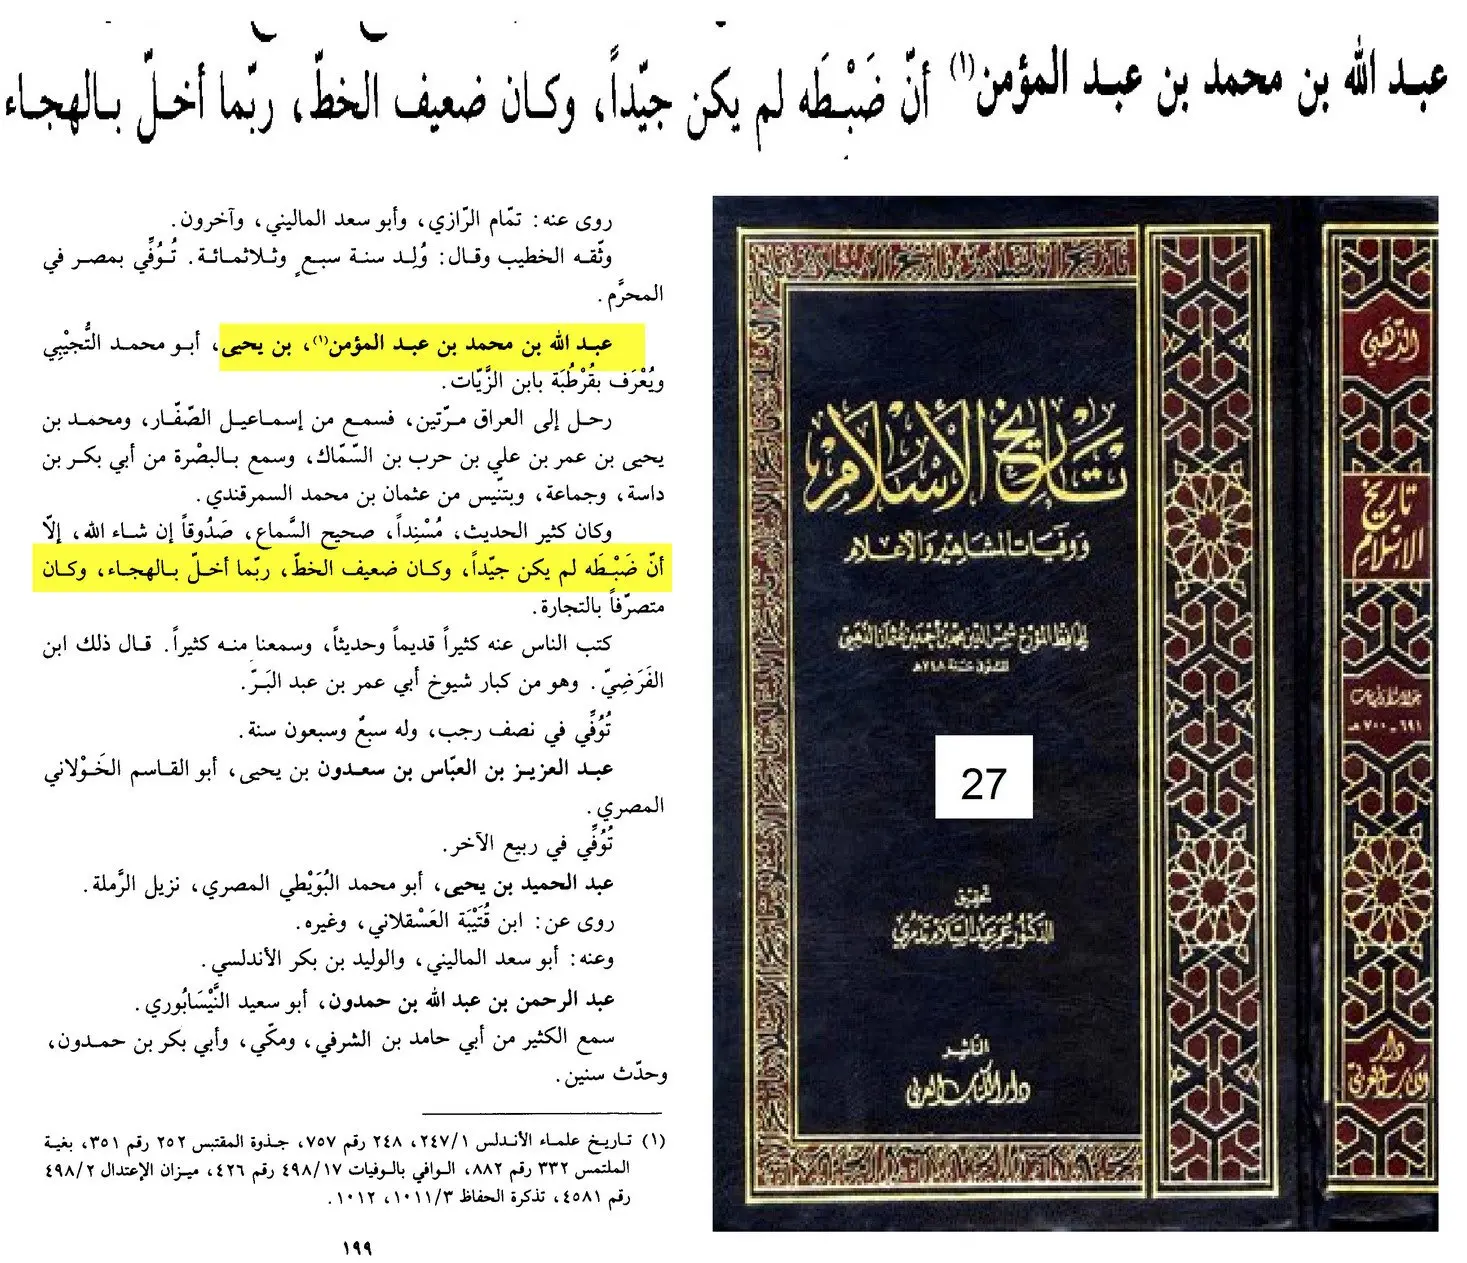 عبد الله بن محمد بن عبد المؤمن(١) أنّ ضَبْطَه لم يكن جيّداً، وكان ضعيف الخطّ، ربّما أخلّ بالهجاء
روى عنه: تمّام الرّازي، وأبو سعد الماليني، وآخرون.
وثّقه الخطيب وقال: وُلِد سنة سبعٍ وثلاثمائة. تُوُفِّي بمصر في
المحرَّم.
عبد الله بن محمد بن عبد المؤمن(١)، بن يحيى، أبو محمد التُّجيْبِي
ويُعْرَف بقُرْطُبَة بابن الزَّيّات.
رحل إلى العراق مرّتين، فسمع من إسماعيل الصّفّار، ومحمد بن
يحيى بن عمر بن علي بن حرب بن السّمّاك، وسمع بالبصْرة من أبي بكر بن
داسة، وجماعة، وبتنّيس من عثمان بن محمد السمرقندي.
وكان كثير الحديث، مُسْنِداً، صحيح السَّماع، صَدُوقاً إن شاء الله، إلّا
أنّ ضَبْطَه لم يكن جيّداً، وكان ضعيف الخطّ، ربّما أخلّ بالهجاء، وكان
متصرّفاً بالتجارة.
كتب الناس عنه كثيراً قديماً وحديثاً، وسمعنا منه كثيراً. قال ذلك ابن
الفَرَضِيّ. وهو من كبار شيوخ أبي عمر بن عبد البَرّ.
تُوُفِّي في نصف رجب، وله سبعٌ وسبعون سنة.
عبد العزيز بن العبّاس بن سعدون بن يحيى، أبو القاسم الخَوْلاني
المصري.
تُوُفِّي في ربيع الآخر.
عبد الحميد بن يحيى، أبو محمد البُوَيْطي المصري، نزيل الرَّملة.
روى عن: ابن قُتَيْبَة العَسْقلاني، وغيره.
وعنه: أبو سعد الماليني، والوليد بن بكر الأندلسي.
عبد الرحمن بن عبد الله بن حمدون، أبو سعيد النَّيْسَابُوري.
سمع الكثير من أبي حامد بن الشرفي، ومكّي، وأبي بكر بن حمدون،
وحدّث سنين.
(١) تاريخ علماء الأندلس ٢٤٧/١، ٢٤٨ رقم ٧٥٧، جذوة المقتبس ٢٥٢ رقم ٣٥١، بغية
الملتمس ٣٣٢ رقم ٨٨٢، الوافي بالوفيات ٤٩٨/١٧ رقم ٤٢٦، ميزان الإعتدال ٤٩٨/٢
رقم ٤٥٨١، تذكرة الحفاظ ١٠١١/٣، ١٠١٢.
١٩٩
تاريخ الإسلام
ووفيات المشاهير والأعلام
للحافظ المؤرخ شمس الدين محمد بن أحمد بن عثمان الذهبي
المتوفى سنة ٧٤٨هـ
27
تحقيق
الدكتور عمر عبد السلام تدمري
الناشر
دار الكتاب العربي
الذّهبي
تاريخ
الإسلام
٦٩١ - ٧٠٠هـ
دار
الكتاب العربي